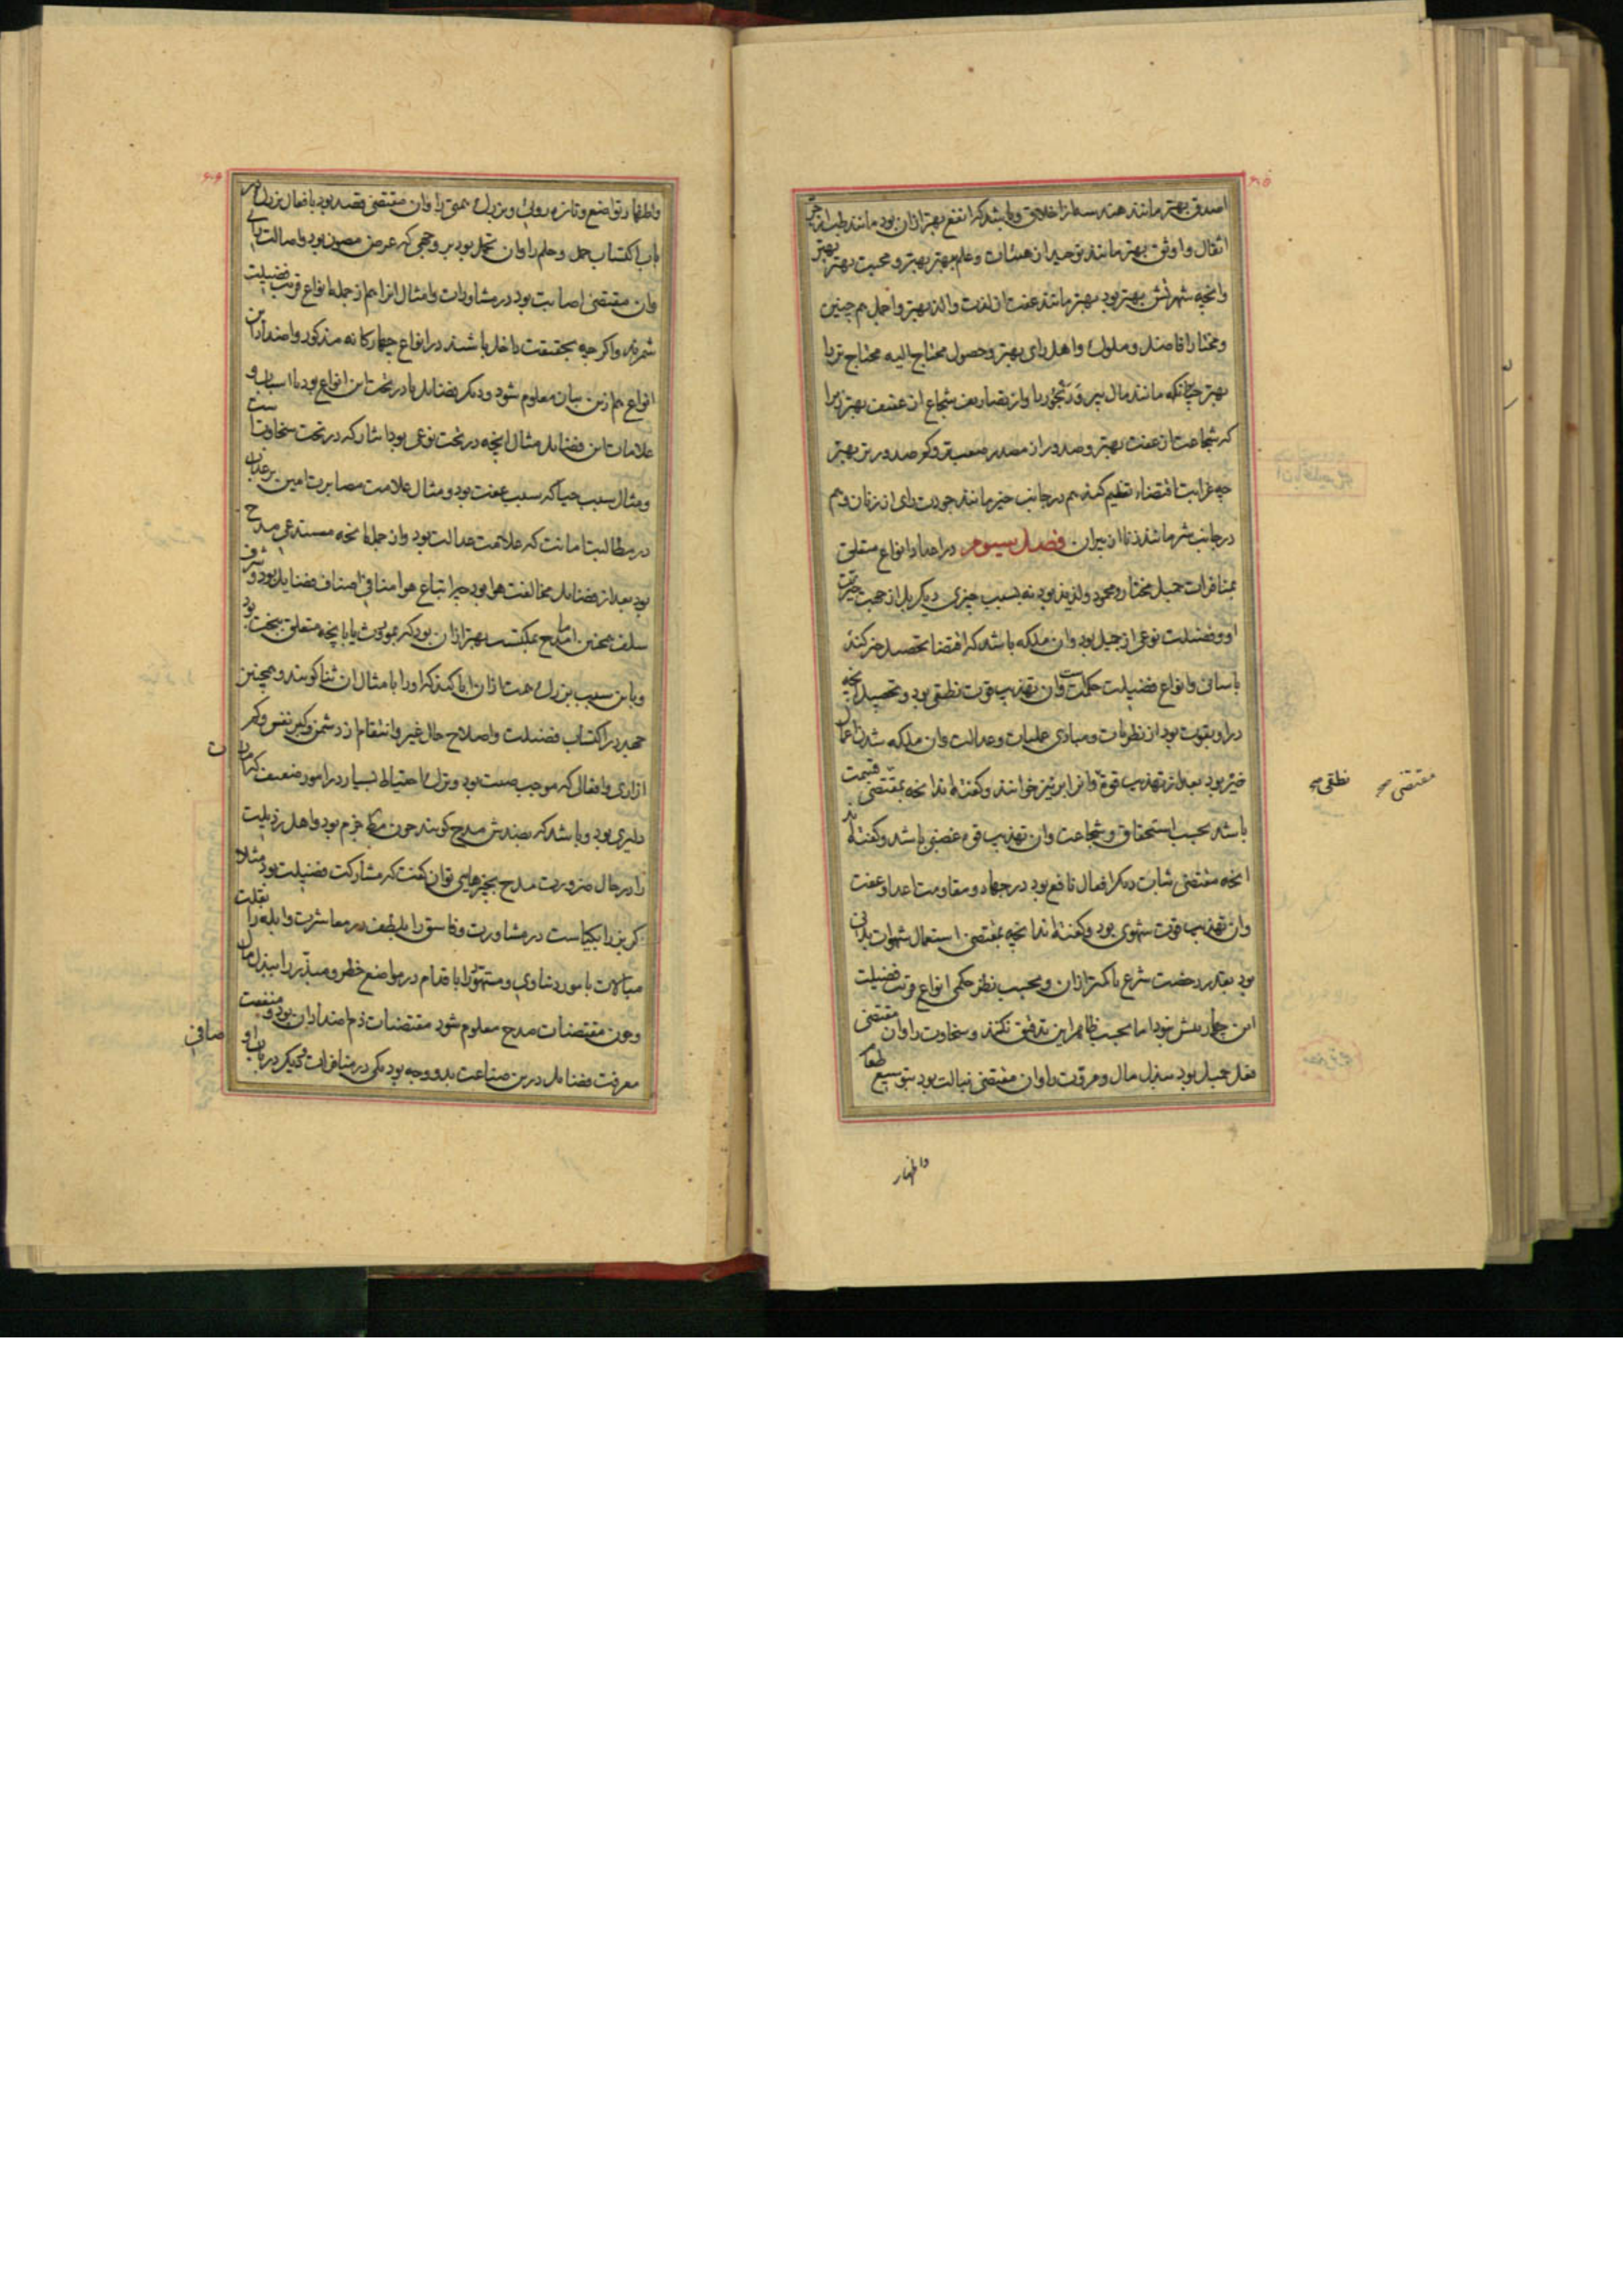 ۶۰۵
اصدق بهتر مانند هندسه از اخلاق و باشد که انفع بهتر ازان بود مانند طب از جر
اثقال و اوثق بهتر مانند توحید از هیئات و علم بهتر بهتر و محبت بهتر بهتر
وانچه شهرتش بهتر بود بهتر مانند عفت از لذت والذ بهتر واجمل هم چنین
و مختار افاضل و ملوک و اهل رای بهتر و حصول محتاج الیه محتاج تر را
بهتر چنانکه مانند مال پیر و رنجور را و از تصاریف شجاع از عفیف بهتر زیرا
که شجاعت از عفت بهتر و صدور از مصدر صعب تر و کم صدور تر بهتر
چه غرابت اقتضاء تعظیم کند هم در جانب خیر مانند جودت رای از زنان و هم
در جانب شر مانند زنا از پیران فصل سیوم در اعداد انواع متعلق
بمنافرات جمیل مختار و محمود و لذیذ بود نه بسبب چیزی دیگر بل از جهت خیریت
او و فضیلت نوعی از جمیل بود وان ملکه باشد که اقتضا تحصیل خیر کند
باسانی و انواع فضیلت حکمت است وان تهذیب قوت نطقی بود و تحصیل انچه
در او بقوت بود از نظریات و مبادی عملیات و عدالت وان ملکه شدن اعمال
خیر بود بعد از تهذیب قوة وانرا بر نیز خوانند و گفته اند انچه بمقتضی قسمت
باشد بحسب استحقاق و شجاعت وان تهذیب قوه غضبی باشد و گفته اند
انچه مقتضی ثبات دیگر افعال نافع بود در جهاد و مقاومت اعدا و عفت
وان تهذیب قوت شهوی بود و گفته اند انچه بمقتضی استعمال شهوات بدنی
بود بقدر رخصت شرع یا کمتر ازان و بحسب نظر حکمی انواع قریب فضیلت
این چهار بیش نبود اما بحسب ظاهر این تدقیق نکنند و سخاوت را وان مقتضی
فعل جمیل بود ببذل مال و مروت را وان مقتضی نبالت بود بتوسیع طعام
واظهار
نطقی صح
مقتضی صح
۶۰۶
واظهار تواضع و تازه رویی و بزرگ همتی را وان مقتضی قصد بود بافعال بزرگ در
باب اکتساب حمل و حلم را وان تحمل بود بر وجهی که عرض مصون بود و اصالت رای
وان مقتضی اصابت بود در مشاورات وامثال انرا هم از جمله انواع قریب فضیلت
شمرند واگر چه بحقیقت داخل باشند در انواع چهارگانه مذکور و اضداد این
انواع هم ازین بیان معلوم شود و دیگر فضایل یا در تحت این انواع بود یا اسباب و
علامات این فضایل مثال انچه در تحت نوعی بود ایثار که در تحت سخاوت است
و مثال سبب حیا که سبب عفت بود و مثال علامت مصابرت امین بر عذاب
در مطالبت امانت که علامت عدالت بود وان جمله انچه مستدعی مدح
بود بعد از فضایل مخالفت هوا بود چه اتباع هوا منافی اصناف فضایل بود و شرف
سلف همچنین اما مدح بمکتسب بهتر ازان بود که بموروث یا بانچه متعلق ببخت بود
و باین سبب بزرگ همت ازان ابا کند که او را بامثال ان ثنا گویند و همچنین
جهد در اکتساب فضیلت و اصلاح حال غیر و انتقام از دشمن و کبر نفس و کم
ازاری و افعالی که موجب صیت بود و ترک احتیاط بسیار در امور ضعیف که امارت
دلیری بود و باشد که بضدش مدح گویند چون محکم حزم بود و اهل رذیلت
را در حال ضرورت مدح بچیزهایی توان گفت که مشارکت فضیلت بود مثلا
گربز را بکیاست در مشاورت و فاسق را بلطف در معاشرت و ابله را بقلت
مبالات بامور دنیاوی و متهور را باقدام در مواضع خطر و مبذر را ببذل مال
و چون مقتضیات مدح معلوم شود مقتضیات ذم اضداد ان بود و منفعت
معرفت فضایل درین صناعت بدو وجه بود یکی در منافرات و دیگر در باب او صافی